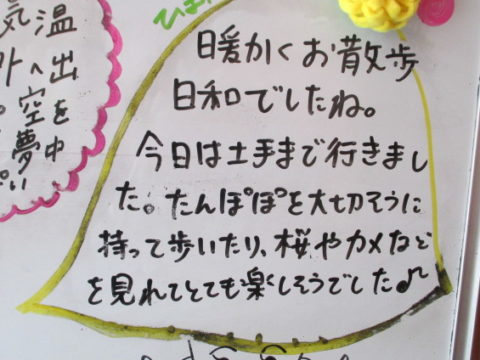 暖かくお散歩
日和でしたね。
今日は土手まで行きまし
た。たんぽぽを大切そうに
持って歩いたり、桜やカメなど
を見れてとても楽しそうでした♪
気温
外へ出
空を
夢中